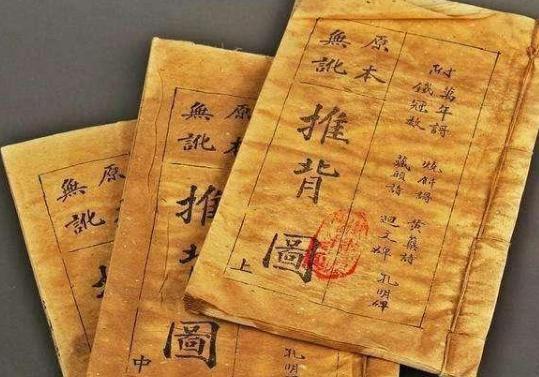 附
萬年謌 燒餅謌 黃蘗詩
鐵冠數 藏頭詩 迴文碑 孔明碑
原本
無訛
推背圖
上
原本
無訛
推背圖
中
孔明
原本
無訛